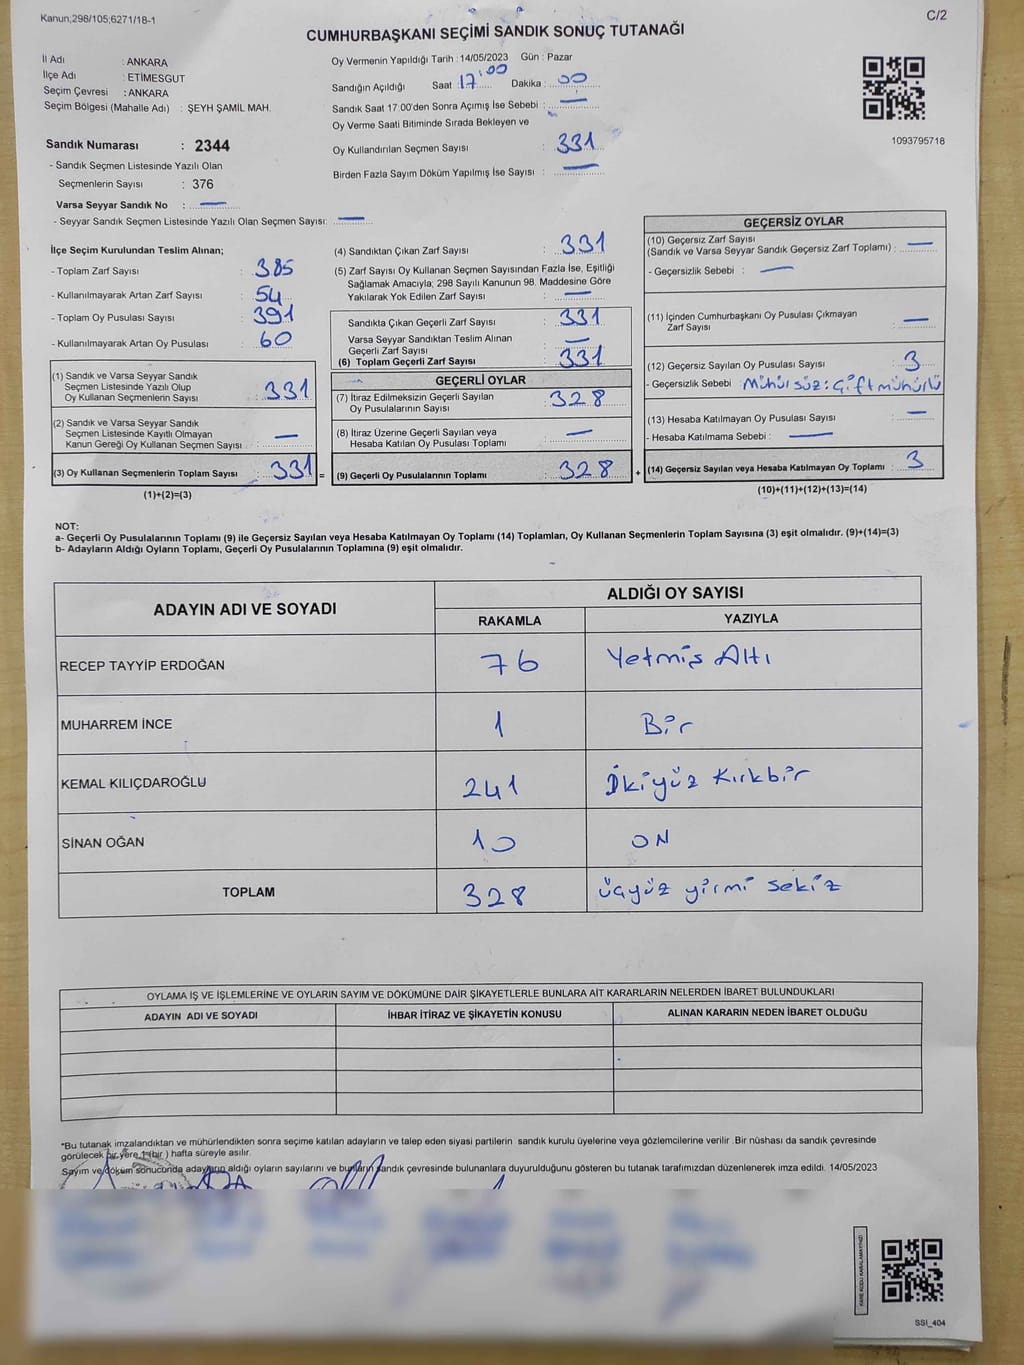 Kanun;298/105;6271/18-1
C/2
CUMHURBAŞKANI SEÇİMİ SANDIK SONUÇ TUTANAĞI
İl Adı : ANKARA
İlçe Adı : ETİMESGUT
Seçim Çevresi : ANKARA
Seçim Bölgesi (Mahalle Adı) : ŞEYH ŞAMİL MAH.
Oy Vermenin Yapıldığı Tarih : 14/05/2023 Gün : Pazar
Sandığın Açıldığı Saat : 17:00 Dakika : 00
Sandık Saat 17:00'den Sonra Açımış İse Sebebi : —
Oy Verme Saati Bitiminde Sırada Bekleyen ve
Oy Kullandırılan Seçmen Sayısı : 331
Birden Fazla Sayım Döküm Yapılmış İse Sayısı : —
1093795718
Sandık Numarası : 2344
- Sandık Seçmen Listesinde Yazılı Olan
Seçmenlerin Sayısı : 376
Varsa Seyyar Sandık No : —
- Seyyar Sandık Seçmen Listesinde Yazılı Olan Seçmen Sayısı: —
İlçe Seçim Kurulundan Teslim Alınan;
- Toplam Zarf Sayısı : 385
- Kullanılmayarak Artan Zarf Sayısı : 54
- Toplam Oy Pusulası Sayısı : 391
- Kullanılmayarak Artan Oy Pusulası : 60
(1) Sandık ve Varsa Seyyar Sandık
Seçmen Listesinde Yazılı Olup
Oy Kullanan Seçmenlerin Sayısı : 331
(2) Sandık ve Varsa Seyyar Sandık
Seçmen Listesinde Kayıtlı Olmayan
Kanun Gereği Oy Kullanan Seçmen Sayısı : —
(3) Oy Kullanan Seçmenlerin Toplam Sayısı : 331 =
(1)+(2)=(3)
(4) Sandıktan Çıkan Zarf Sayısı : 331
(5) Zarf Sayısı Oy Kullanan Seçmen Sayısından Fazla İse, Eşitliği
Sağlamak Amacıyla; 298 Sayılı Kanunun 98. Maddesine Göre
Yakılarak Yok Edilen Zarf Sayısı : —
Sandıkta Çıkan Geçerli Zarf Sayısı : 331
Varsa Seyyar Sandıktan Teslim Alınan
Geçerli Zarf Sayısı : —
(6) Toplam Geçerli Zarf Sayısı : 331
GEÇERLİ OYLAR
(7) İtiraz Edilmeksizin Geçerli Sayılan
Oy Pusulalarının Sayısı : 328
(8) İtiraz Üzerine Geçerli Sayılan veya
Hesaba Katılan Oy Pusulası Toplamı : —
(9) Geçerli Oy Pusulalarının Toplamı : 328 +
GEÇERSİZ OYLAR
(10) Geçersiz Zarf Sayısı
(Sandık ve Varsa Seyyar Sandık Geçersiz Zarf Toplamı) : —
- Geçersizlik Sebebi : —
(11) İçinden Cumhurbaşkanı Oy Pusulası Çıkmayan
Zarf Sayısı : —
(12) Geçersiz Sayılan Oy Pusulası Sayısı : 3
- Geçersizlik Sebebi : Mühürsüz: Çift mühürlü
(13) Hesaba Katılmayan Oy Pusulası Sayısı : —
- Hesaba Katılmama Sebebi : —
(14) Geçersiz Sayılan veya Hesaba Katılmayan Oy Toplamı : 3
(10)+(11)+(12)+(13)=(14)
NOT:
a- Geçerli Oy Pusulalarının Toplamı (9) ile Geçersiz Sayılan veya Hesaba Katılmayan Oy Toplamı (14) Toplamları, Oy Kullanan Seçmenlerin Toplam Sayısına (3) eşit olmalıdır. (9)+(14)=(3)
b- Adayların Aldığı Oyların Toplamı, Geçerli Oy Pusulalarının Toplamına (9) eşit olmalıdır.
ADAYIN ADI VE SOYADI ALDIĞI OY SAYISI
RAKAMLA YAZIYLA
RECEP TAYYİP ERDOĞAN 76 Yetmiş Altı
MUHARREM İNCE 1 Bir
KEMAL KILIÇDAROĞLU 241 İkiyüz Kırkbir
SİNAN OĞAN 10 ON
TOPLAM 328 üçyüz yirmi sekiz
OYLAMA İŞ VE İŞLEMLERİNE VE OYLARIN SAYIM VE DÖKÜMÜNE DAİR ŞİKAYETLERLE BUNLARA AİT KARARLARIN NELERDEN İBARET BULUNDUKLARI
ADAYIN ADI VE SOYADI İHBAR İTİRAZ VE ŞİKAYETİN KONUSU ALINAN KARARIN NEDEN İBARET OLDUĞU
*Bu tutanak imzalandıktan ve mühürlendikten sonra seçime katılan adayların ve talep eden siyasi partilerin sandık kurulu üyelerine veya gözlemcilerine verilir .Bir nüshası da sandık çevresinde
görülecek bir yere 1 (bir ) hafta süreyle asılır.
Sayım ve döküm sonucunda adayların aldığı oyların sayılarını ve bunların sandık çevresinde bulunanlara duyurulduğunu gösteren bu tutanak tarafımızdan düzenlenerek imza edildi. 14/05/2023
KARE KODU KARALAMAYINIZ!
SSİ_404